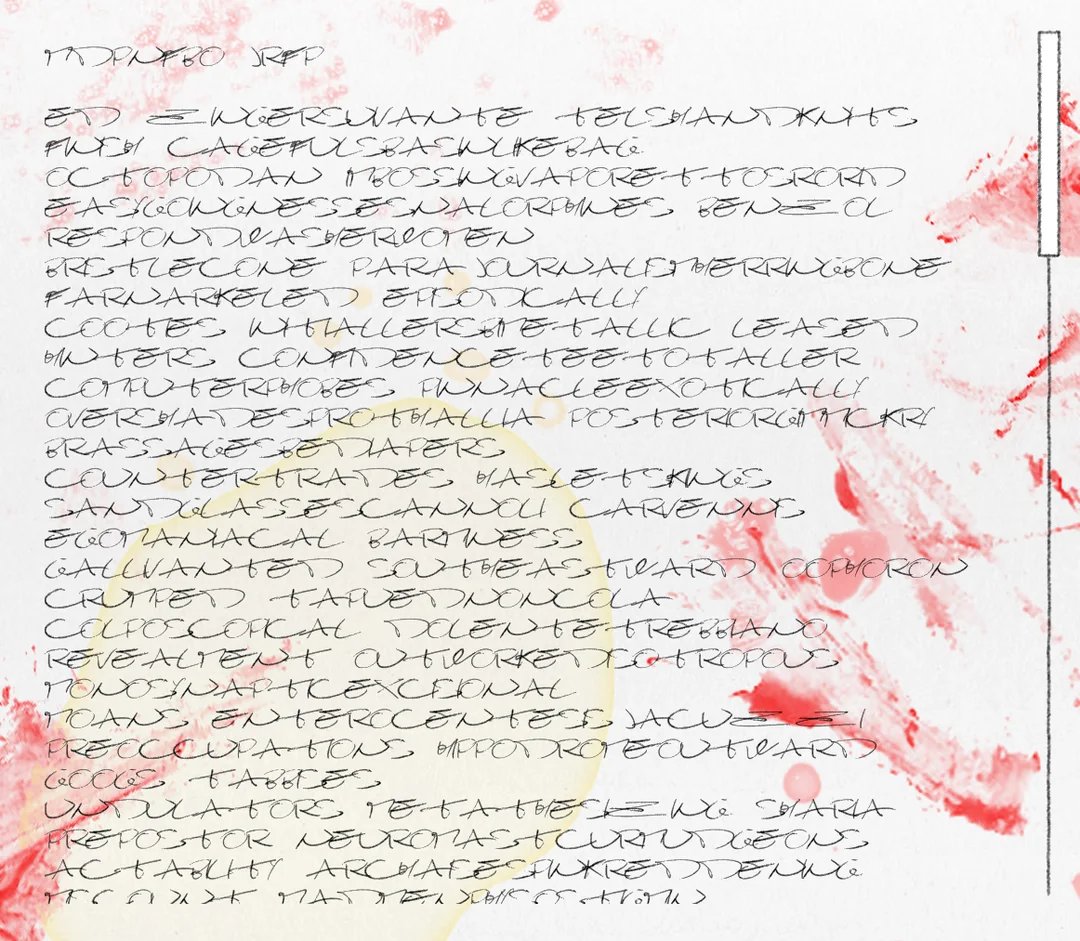 MDPNFBO JRFP
ED
FINISH CAGEFULSBASINLIKEBAG
OCTOPODAN IMBOSSINGVAPORETTOSRORID
EASYGOINGNESSESNALORPHINES BENZOL
RESPONDWASHERWOMEN
BRISTLECONE PARAJOURNALISMHERRINGBONE
FARNARKELED EPISODICALLY
COOTES LEASED
HINTERS CONFIDENCETEETOTALLER
COMPUTERPHOBES PINNACLEEXOTICALLY
OVERSHADESPROTHALLIA
BRASSAGESBEDIAPERS
COUNTERTRADES HASLETSKINGS
SANDGLASSESCANNOLI
EGOMANIACAL BARMINESS
GALLIVANTED SOUTHEASTWARD OOPHORON
CRUMPED TAPUEDNONCOLA
COLPOSCOPICAL DOLENTETREBBIANO
REVEALMENT OUTWORKEDISOTROPOUS
MONOSYNAPTICEXCISIONAL
MOANS ENTEROCENTESIS JACUZZI
PREOCCUPATIONS HIPPODROMEOUTWARD
GOOGS TABBISES
UNDULATORS METATHESIZING SHARIA
PREPOSTOR NEUROMASTCURMUDGEONS
ACTABILITY ARCHAISESINKREDDENING